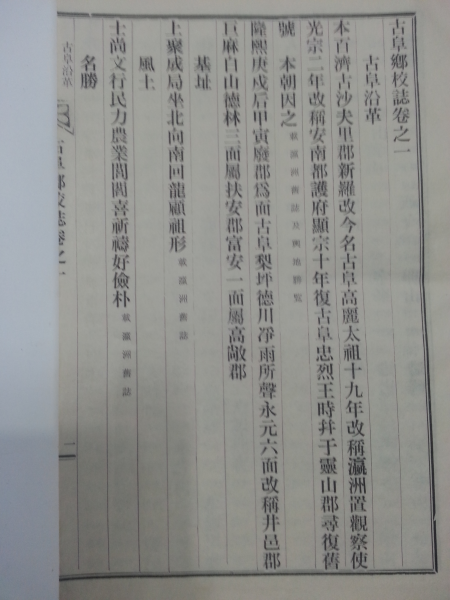 古阜鄉校誌卷之一
古阜沿革
本百濟古沙夫里郡新羅改今名古阜高麗太祖十九年改稱瀛洲置觀察使
光宗二年改稱安南都護府顯宗十年復古阜忠烈王時幷于靈山郡尋復舊
號 本朝因之載瀛洲舊誌及輿地勝覽
隆熙庚戌后甲寅廢郡爲面古阜梨坪德川淨雨所聲永元六面改稱井邑郡
巨麻白山德林三面屬扶安郡富安一面屬高敞郡
基址
上聚成局坐北向南回龍顧祖形載瀛洲舊誌
風土
士尚文行民力農業閭閻喜祈禱好儉朴載瀛洲舊誌
名勝
古阜沿革
古阜鄉校誌卷之一
一